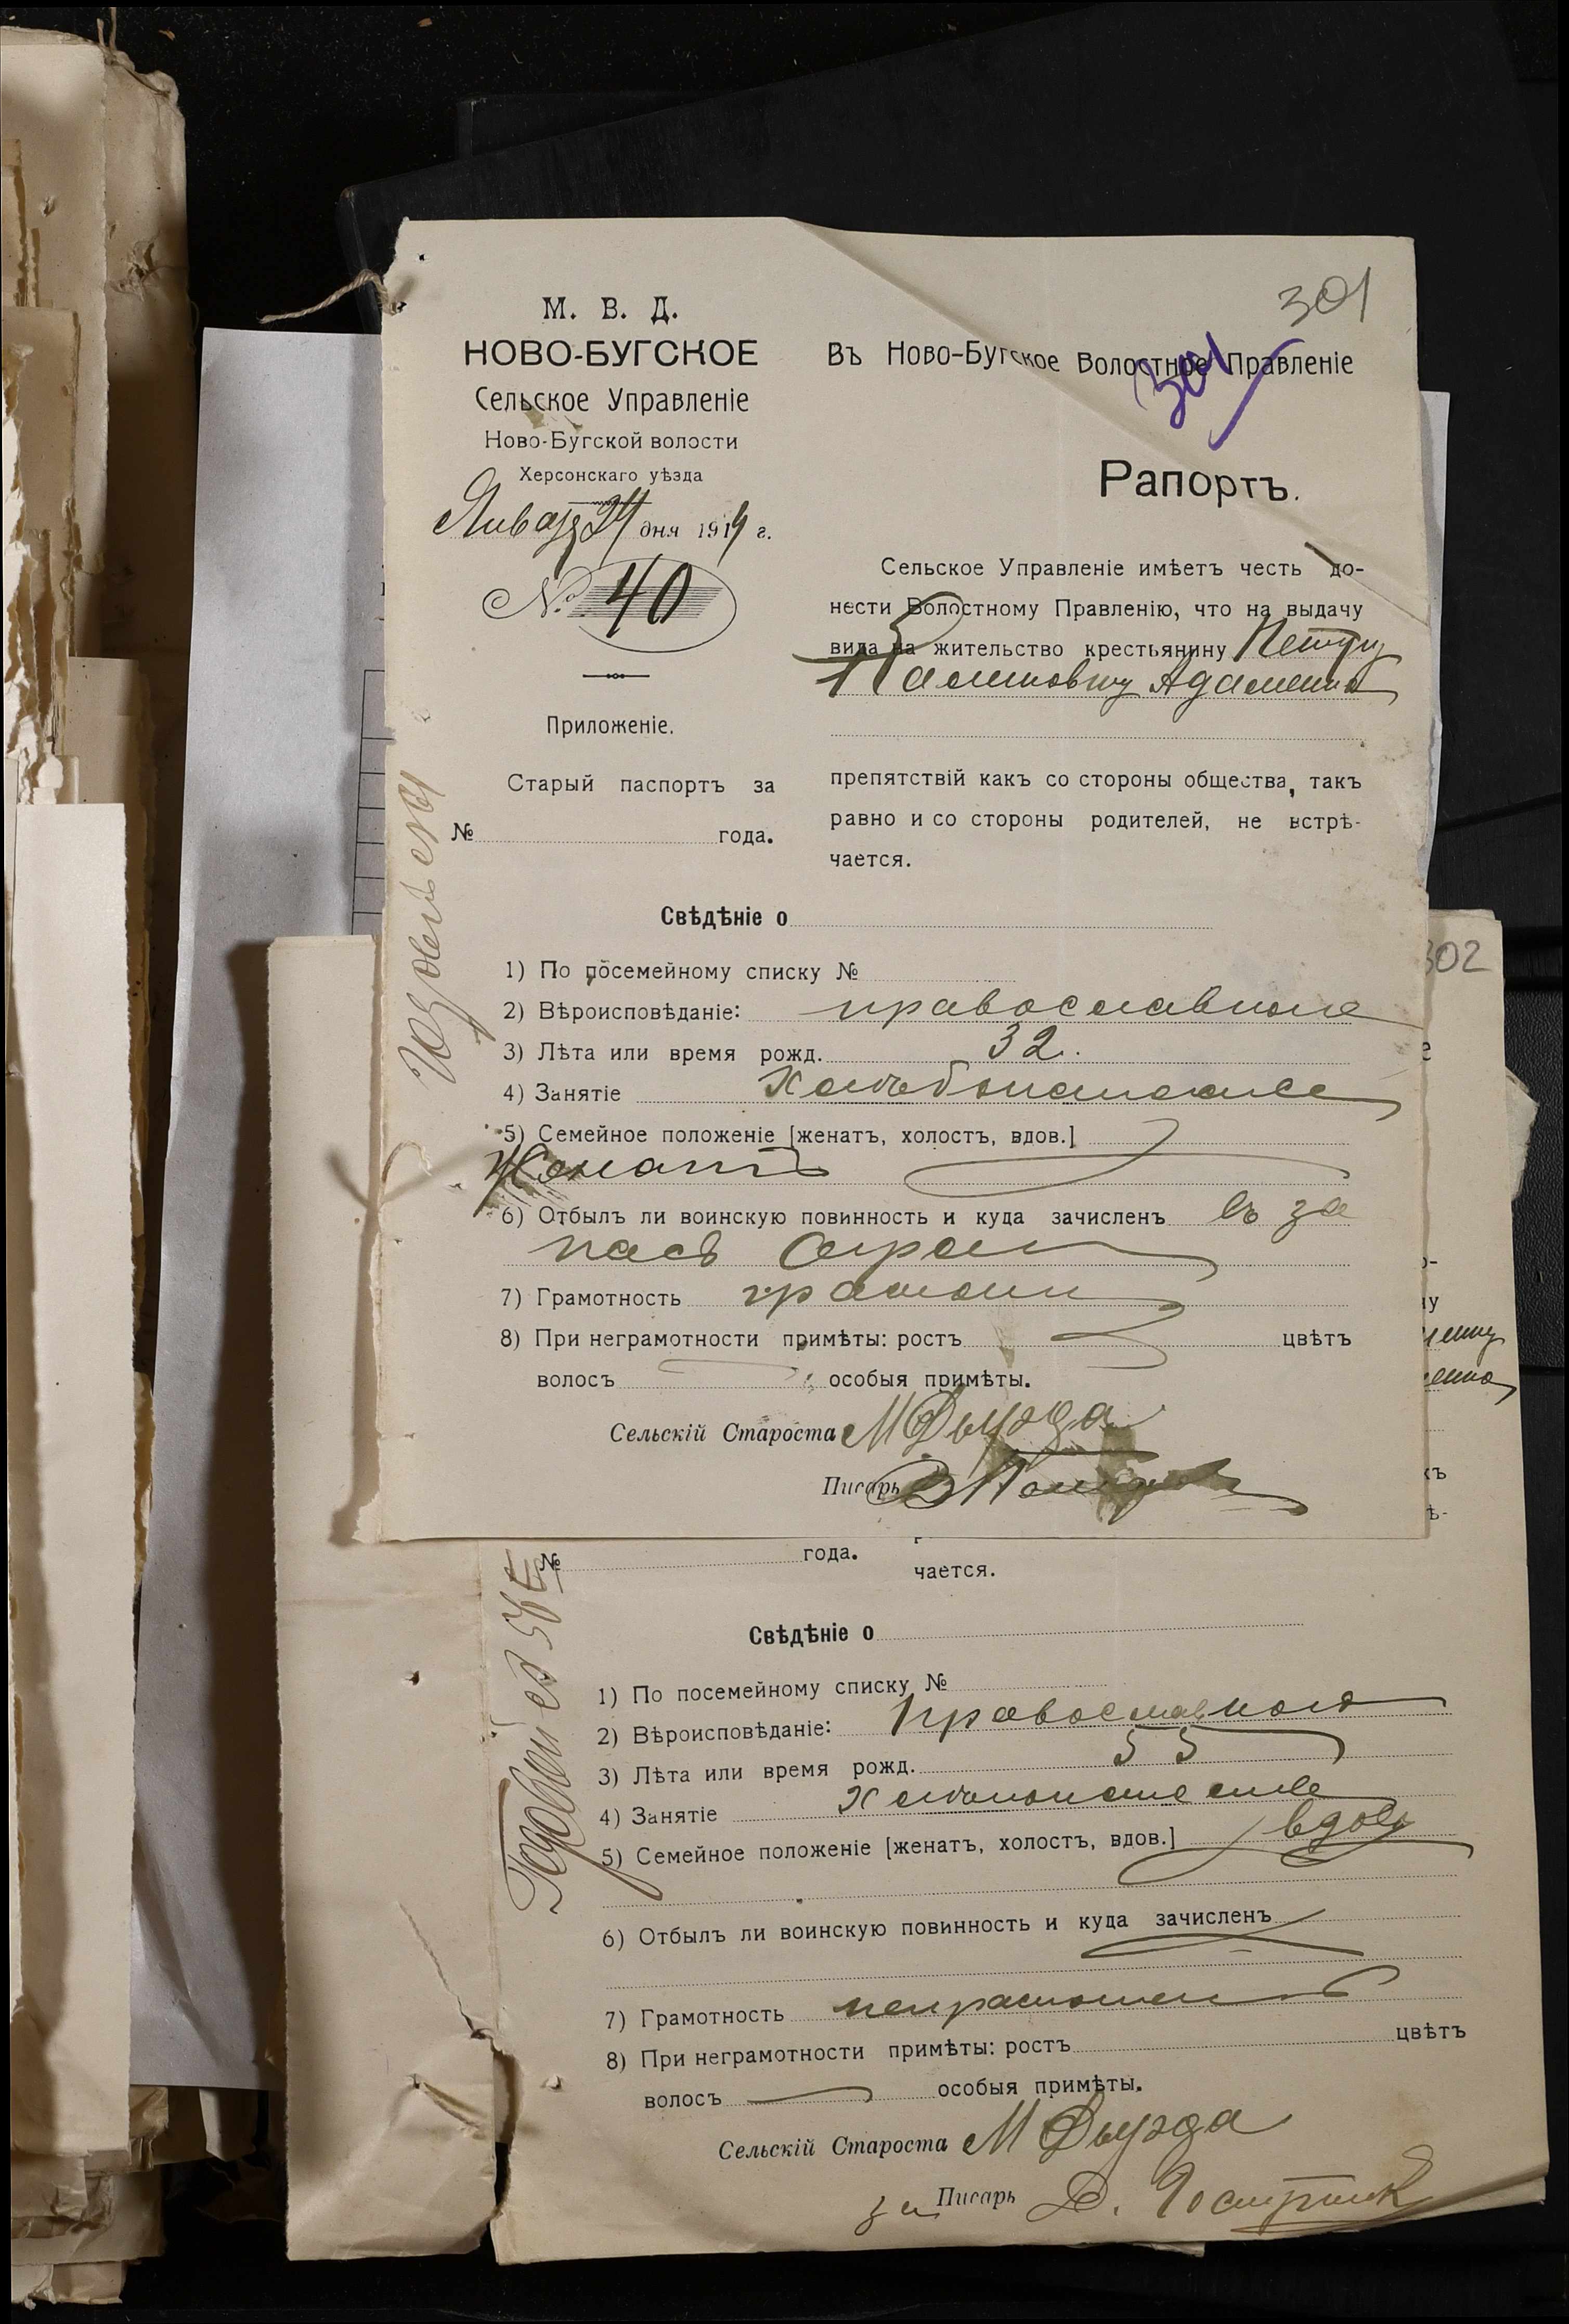 301
301
М. В. Д.
НОВО-БУГСКОЕ
Сельское Управленіе
Ново-Бугской волости
Херсонскаго уѣзда
Января 24 дня 1914 г.
№ 40
Приложеніе.
Старый паспортъ за
№ года.
Въ Ново-Бугское Волостное Правленіе
Рапортъ.
Сельское Управленіе имѣетъ честь до-
нести Волостному Правленію, что на выдачу
вида на жительство крестьянину Петру
Адаменко
препятствій какъ со стороны общества, такъ
равно и со стороны родителей, не встрѣ-
чается.
Свѣдѣніе о
1) По посемейному списку №
2) Вѣроисповѣданіе: православное
3) Лѣта или время рожд. 32.
4) Занятіе
5) Семейное положеніе [женатъ, холостъ, вдов.]
Женатъ
6) Отбылъ ли воинскую повинность и куда зачисленъ въ за
пасъ
7) Грамотность
8) При неграмотности примѣты: ростъ цвѣтъ
волосъ особыя примѣты.
Сельскій Староста
Писарь
302
№ года.
чается.
Свѣдѣніе о
1) По посемейному списку №
2) Вѣроисповѣданіе: православного
3) Лѣта или время рожд. 55
4) Занятіе
5) Семейное положеніе [женатъ, холостъ, вдов.] вдовъ
6) Отбылъ ли воинскую повинность и куда зачисленъ
7) Грамотность
8) При неграмотности примѣты: ростъ цвѣтъ
волосъ особыя примѣты.
Сельскій Староста
за Писарь Д.